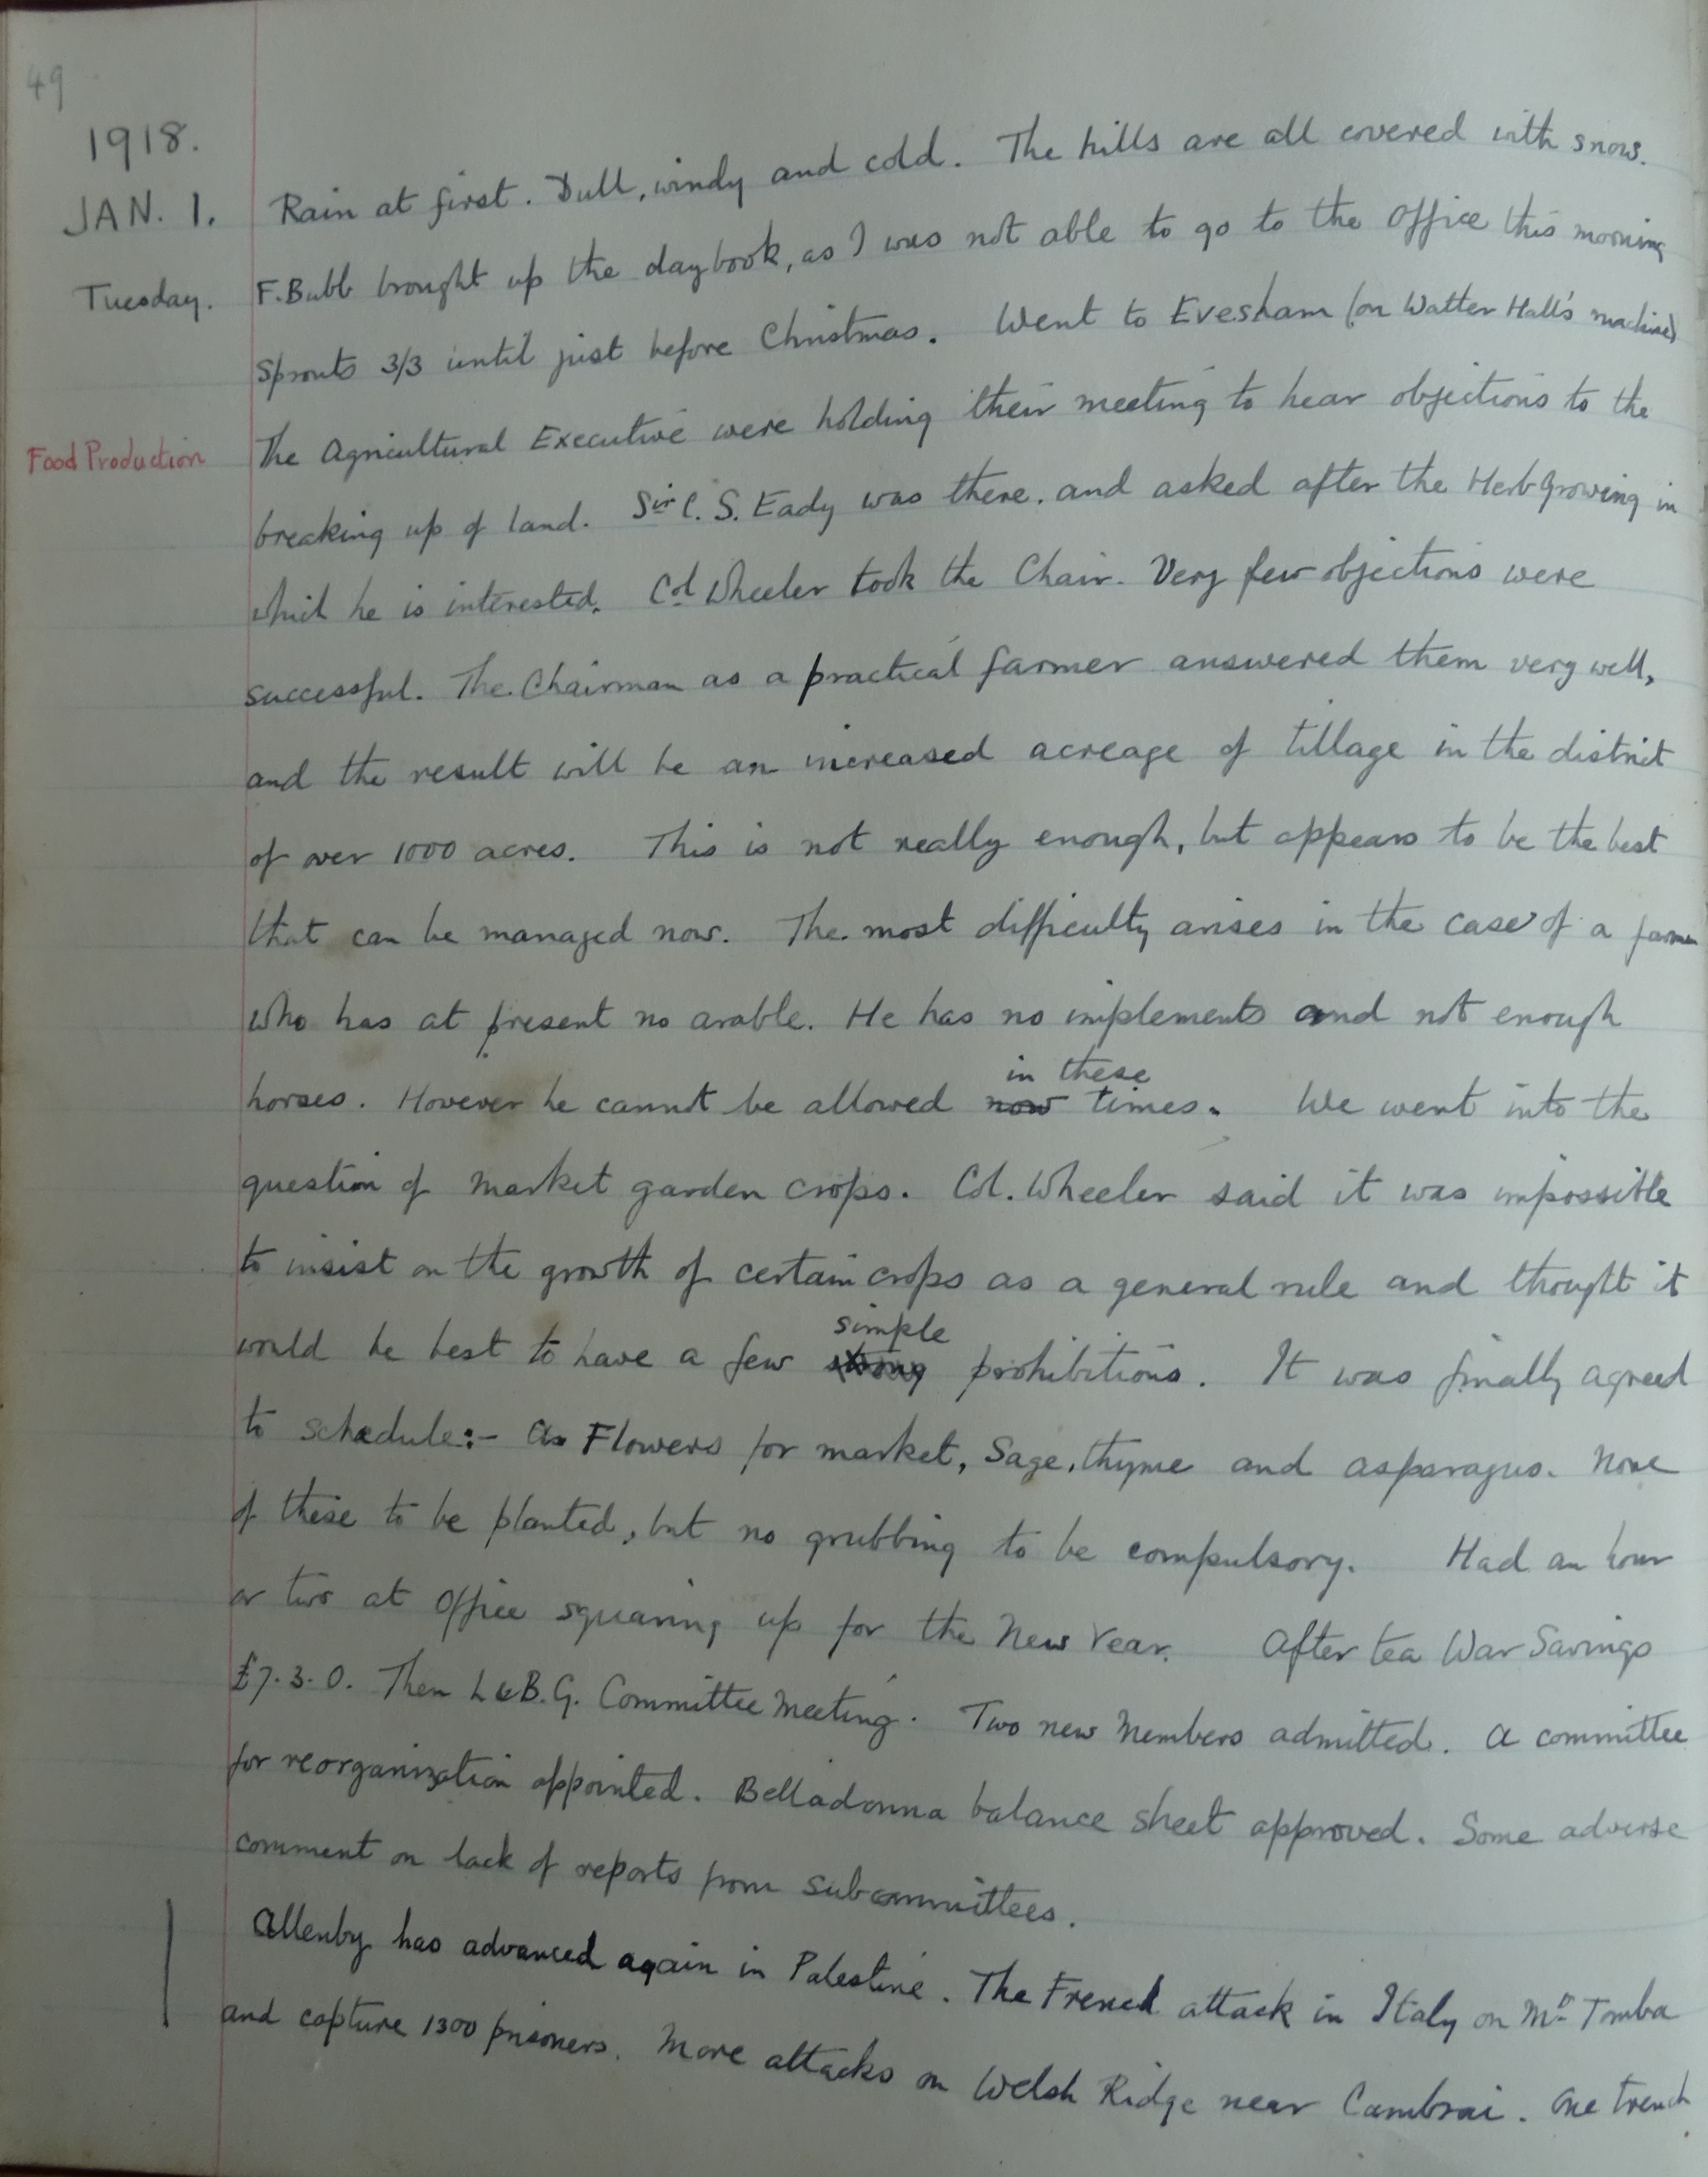 49
1918.
JAN. 1. Rain at first. Dull, windy and cold. The hills are all covered with snow.
Tuesday. F. Bubb brought up the daybook, as I was not able to go to the Office this morning
Sprouts 3/3 until just before Christmas. Went to Evesham (on Walter Hall's machine)
Food Production The Agricultural Executive were holding their meeting to hear objections to the
breaking up of land. Sir C. S. Eady was there, and asked after the Herb growing in
which he is interested. Col Wheeler took the Chair. Very few objections were
successful. The Chairman as a practical farmer answered them very well,
and the result will be an increased acreage of tillage in the district
of over 1000 acres. This is not really enough, but appears to be the best
that can be managed now. The most difficulty arises in the case of a farmer
who has at present no arable. He has no implements and not enough
in these
horses. However he cannot be allowed now times. We went into the
question of market garden crops. Col. Wheeler said it was impossible
to insist on the growth of certain crops as a general rule and thought it
simple
would be best to have a few strong prohibitions. It was finally agreed
to schedule:- as Flowers for market, Sage, thyme and asparagus. None
of these to be planted, but no grubbing to be compulsory. Had an hour
or two at Office squaring up for the New Year. After tea War Savings
£7.3.0. Then L & B.G. Committee Meeting. Two new Members admitted. A committee
for reorganization appointed. Belladonna balance sheet approved. Some adverse
comment on lack of reports from subcommittees.
Allenby has advanced again in Palestine. The French attack in Italy on Mt Tomba
and capture 1300 prisoners. More attacks on Welsh Ridge near Cambrai. One trench